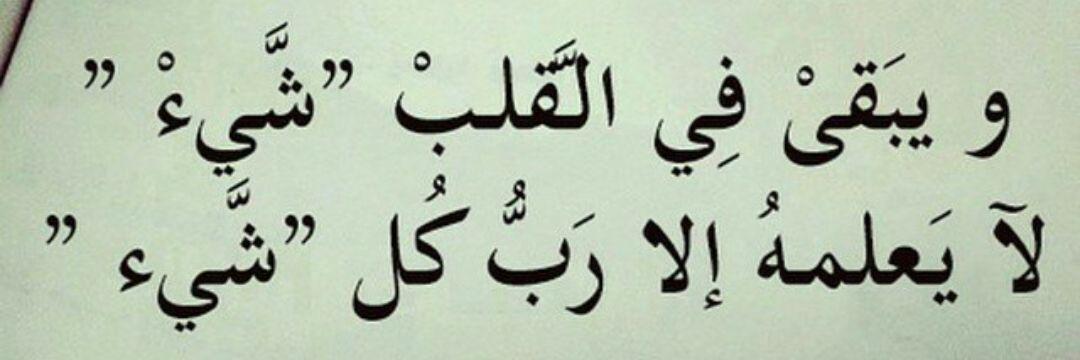 و يبَقىْ فِي الَّقلبْ ”شَّيءْ ”
لآ يَعلمهُ إلا رَبُّ كُل ”شَّيء ”